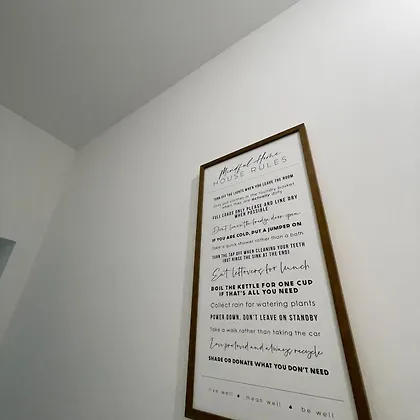 Mindful Home
HOUSE RULES
TURN OFF THE LIGHTS WHEN YOU LEAVE THE ROOM
Only put clothes in the laundry basket
when they are actually dirty
FULL LOADS ONLY PLEASE AND LINE DRY
WHEN POSSIBLE
Don't leave the fridge door open
IF YOU ARE COLD, PUT A JUMPER ON
Take a quick shower rather than a bath
TURN THE TAP OFF WHEN CLEANING YOUR TEETH
(BUT RINSE THE SINK AT THE END)
Eat leftovers for lunch
BOIL THE KETTLE FOR ONE CUP
IF THAT'S ALL YOU NEED
Collect rain for watering plants
POWER DOWN, DON'T LEAVE ON STANDBY
Take a walk rather than taking the car
Love preloved and always recycle
SHARE OR DONATE WHAT YOU DON'T NEED
live well hygge well be well